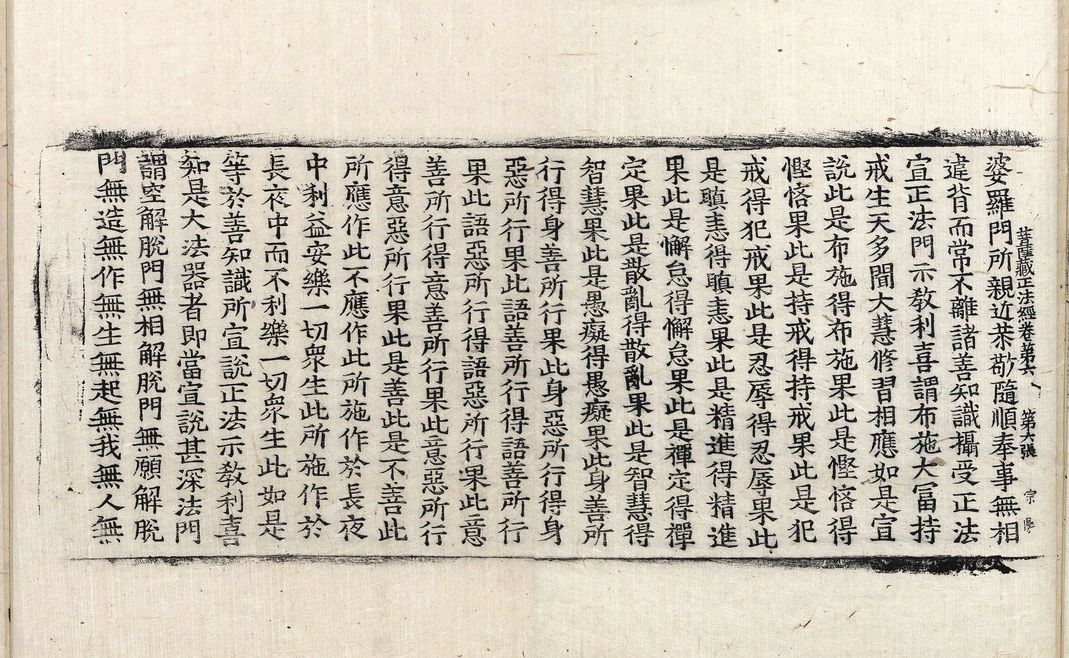 菩薩藏正法經卷第六 第六張 宗
婆羅門所親近恭敬隨順奉事無相
違背而常不離諸善知識攝受正法
宣正法門示教利喜謂布施大冨持
戒生天多聞大慧修習相應如是宣
說此是布施得布施果此是慳悋得
慳悋果此是持戒得持戒果此是犯
戒得犯戒果此是忍辱得忍辱果此
是瞋恚得瞋恚果此是精進得精進
果此是懈怠得懈怠果此是禪定得禪
定果此是散亂得散亂果此是智慧得
智慧果此是愚癡得愚癡果此身善所
行得身善所行果此身惡所行得身
惡所行果此語善所行得語善所行
果此語惡所行得語惡所行果此意
善所行得意善所行果此意惡所行
得意惡所行果此是善此是不善此
所應作此不應作此所施作於長夜
中利益安樂一切衆生此所施作於
長夜中而不利樂一切衆生此如是
等於善知識所宣說正法示教利喜
知是大法器者即當宣說甚深法門
謂空解脫門無相解脫門無願解脫
門無造無作無生無起無我無人無